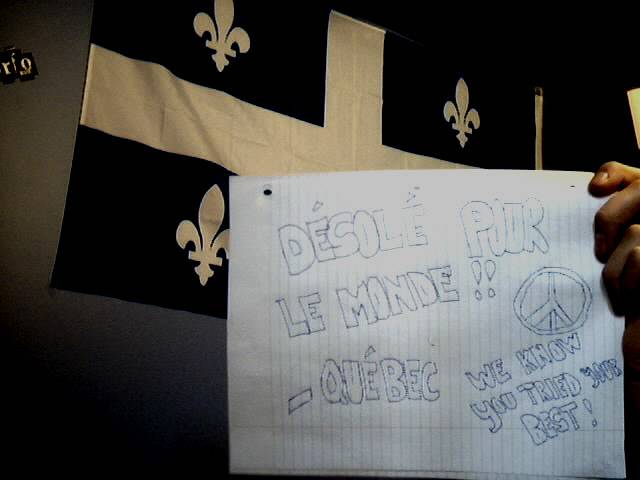 rio
DÉSOLÉ POUR
LE MONDE!!
- QUÉBEC
WE KNOW
YOU TRIED YOUR
BEST!